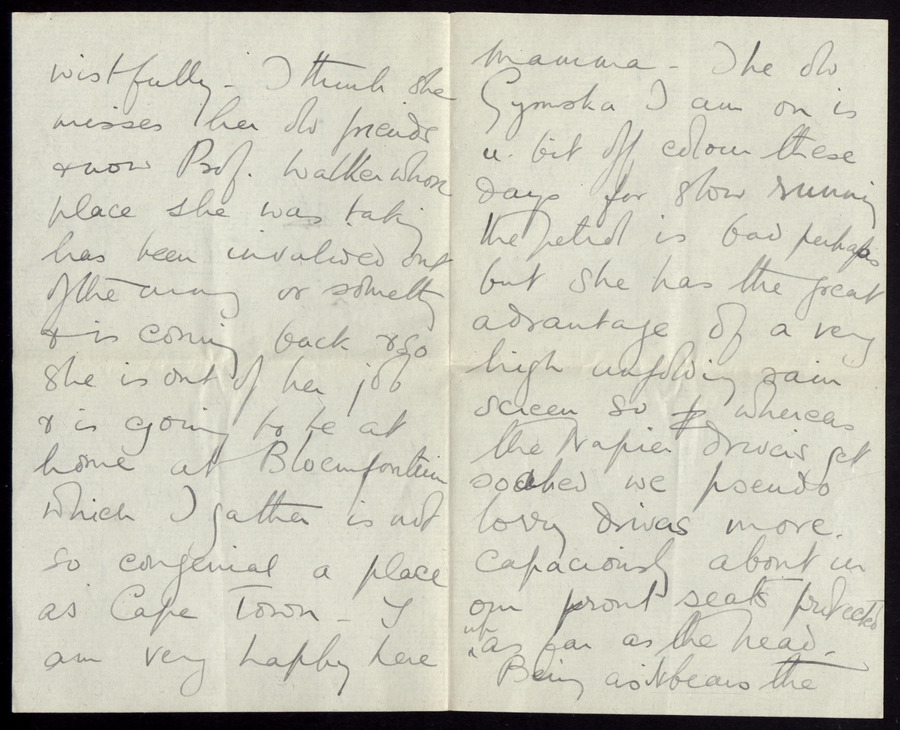 wistfully - I think she
misses her old friends
& now Prof. Walker whose
place she was taking
has been invalided out
of the army or something
& is coming back & so
she is out of her job
& is going to be at
home at Bloemfontein
which I gather is not
so congenial a place
as Cape Town - I
am very happy here
mamma - The old
I am on is
a bit off colour these
days for slow running
the petrol is bad perhaps
but she has the great
advantage of a very
high unfolding rain
screen so whereas
the Napier drivers get
soaked we pseudo
lorry drivers move
capaciously about in
our front seats protected
up as far as the head -
Being as it bears the